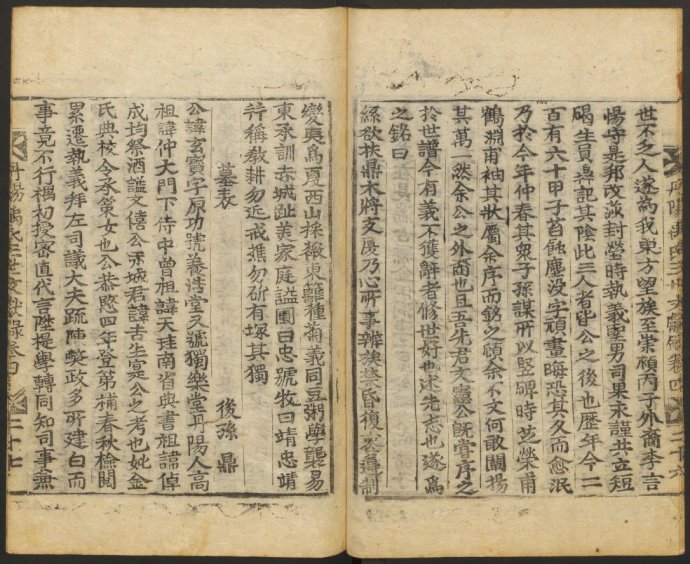 世不乏人遂爲我東方望族至崇禎丙子外裔李言
惕守是邦改莎封塋時執義家男司果末謹共立短
碣生員 記其陰此三人者皆公之後也歷年今二
百有六十甲子苔蝕塵沒字頑畫晦恐其久而愈泯
乃於今年仲春其衆子孫謀所以竪碑時芝榮甫
鶴淵甫袖其狀屬余序而銘之顧余不文何敢闡揚
其萬一然余公之外裔也且五先君文憲公旣嘗序之
於世譜今有義不獲辭者修世好也述先志也遂爲
之銘曰
繇欲扶鼎木將支廈乃心所事 復 制
丹陽禹氏三世文獻錄卷四
二十六
變夷爲夏西山採薇東籬種菊義同豆粥學襲易
東承訓赤城趾美家庭謚圃曰忠號牧曰靖忠靖
幷稱敎耕勿近戒樵勿斫有塚其獨
墓表
後孫 鼎
公諱玄寶字原功號養浩堂又號獨樂堂丹陽人高
祖諱仲大門下侍中曾祖諱天珪南省典書祖諱倬
成均祭酒謚文僖公禾城君諱吉生寔公之考也妣金
氏典校令承 女也公恭愍四年登第補春秋檢閱
累遷執義拜左司議大夫疏陳弊政多所建白而
事竟不行禑初授密直代言陞提學轉同知司事兼
丹陽禹氏三世文獻錄卷四
二十七